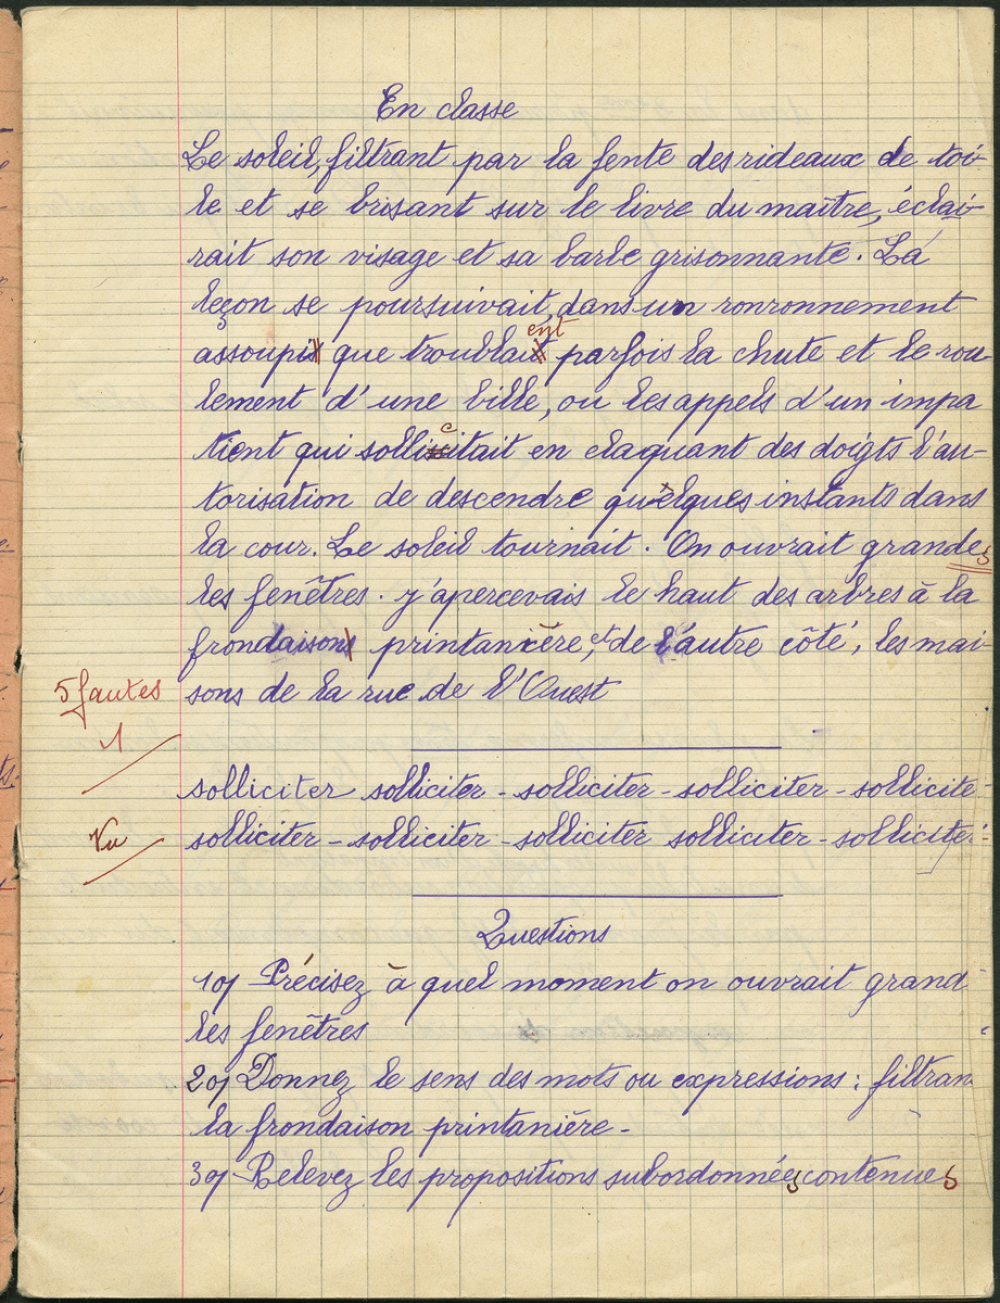 En classe
Le soleil, filtrant par la fente des rideaux de toi-
le et se brisant sur le livre du maître, éclai-
rait son visage et sa barbe grisonnante. La
leçon se poursuivait, dans un ronronnement
ent
assoupi que troublai parfois la chute et le rou-
lement d'une bille, ou les appels d'un impa
tient qui sollicitait en claquant des doigts l'au-
torisation de descendre quelques instants dans
la cour. Le soleil tournait. On ouvrait grandes
les fenêtres. j'apercevais le haut des arbres à la
frondaison printanière, et de l'autre côté, les mai-
5 fautes sons de la rue de l'Ouest
1
solliciter solliciter - solliciter - solliciter - sollicite-
Vu solliciter - solliciter - solliciter solliciter - solliciter
Questions
1o) Précisez à quel moment on ouvrait grand
les fenêtres
2o) Donnez le sens des mots ou expressions : filtran
la frondaison printanière -
3o) Relevez les propositions subordonnées contenues